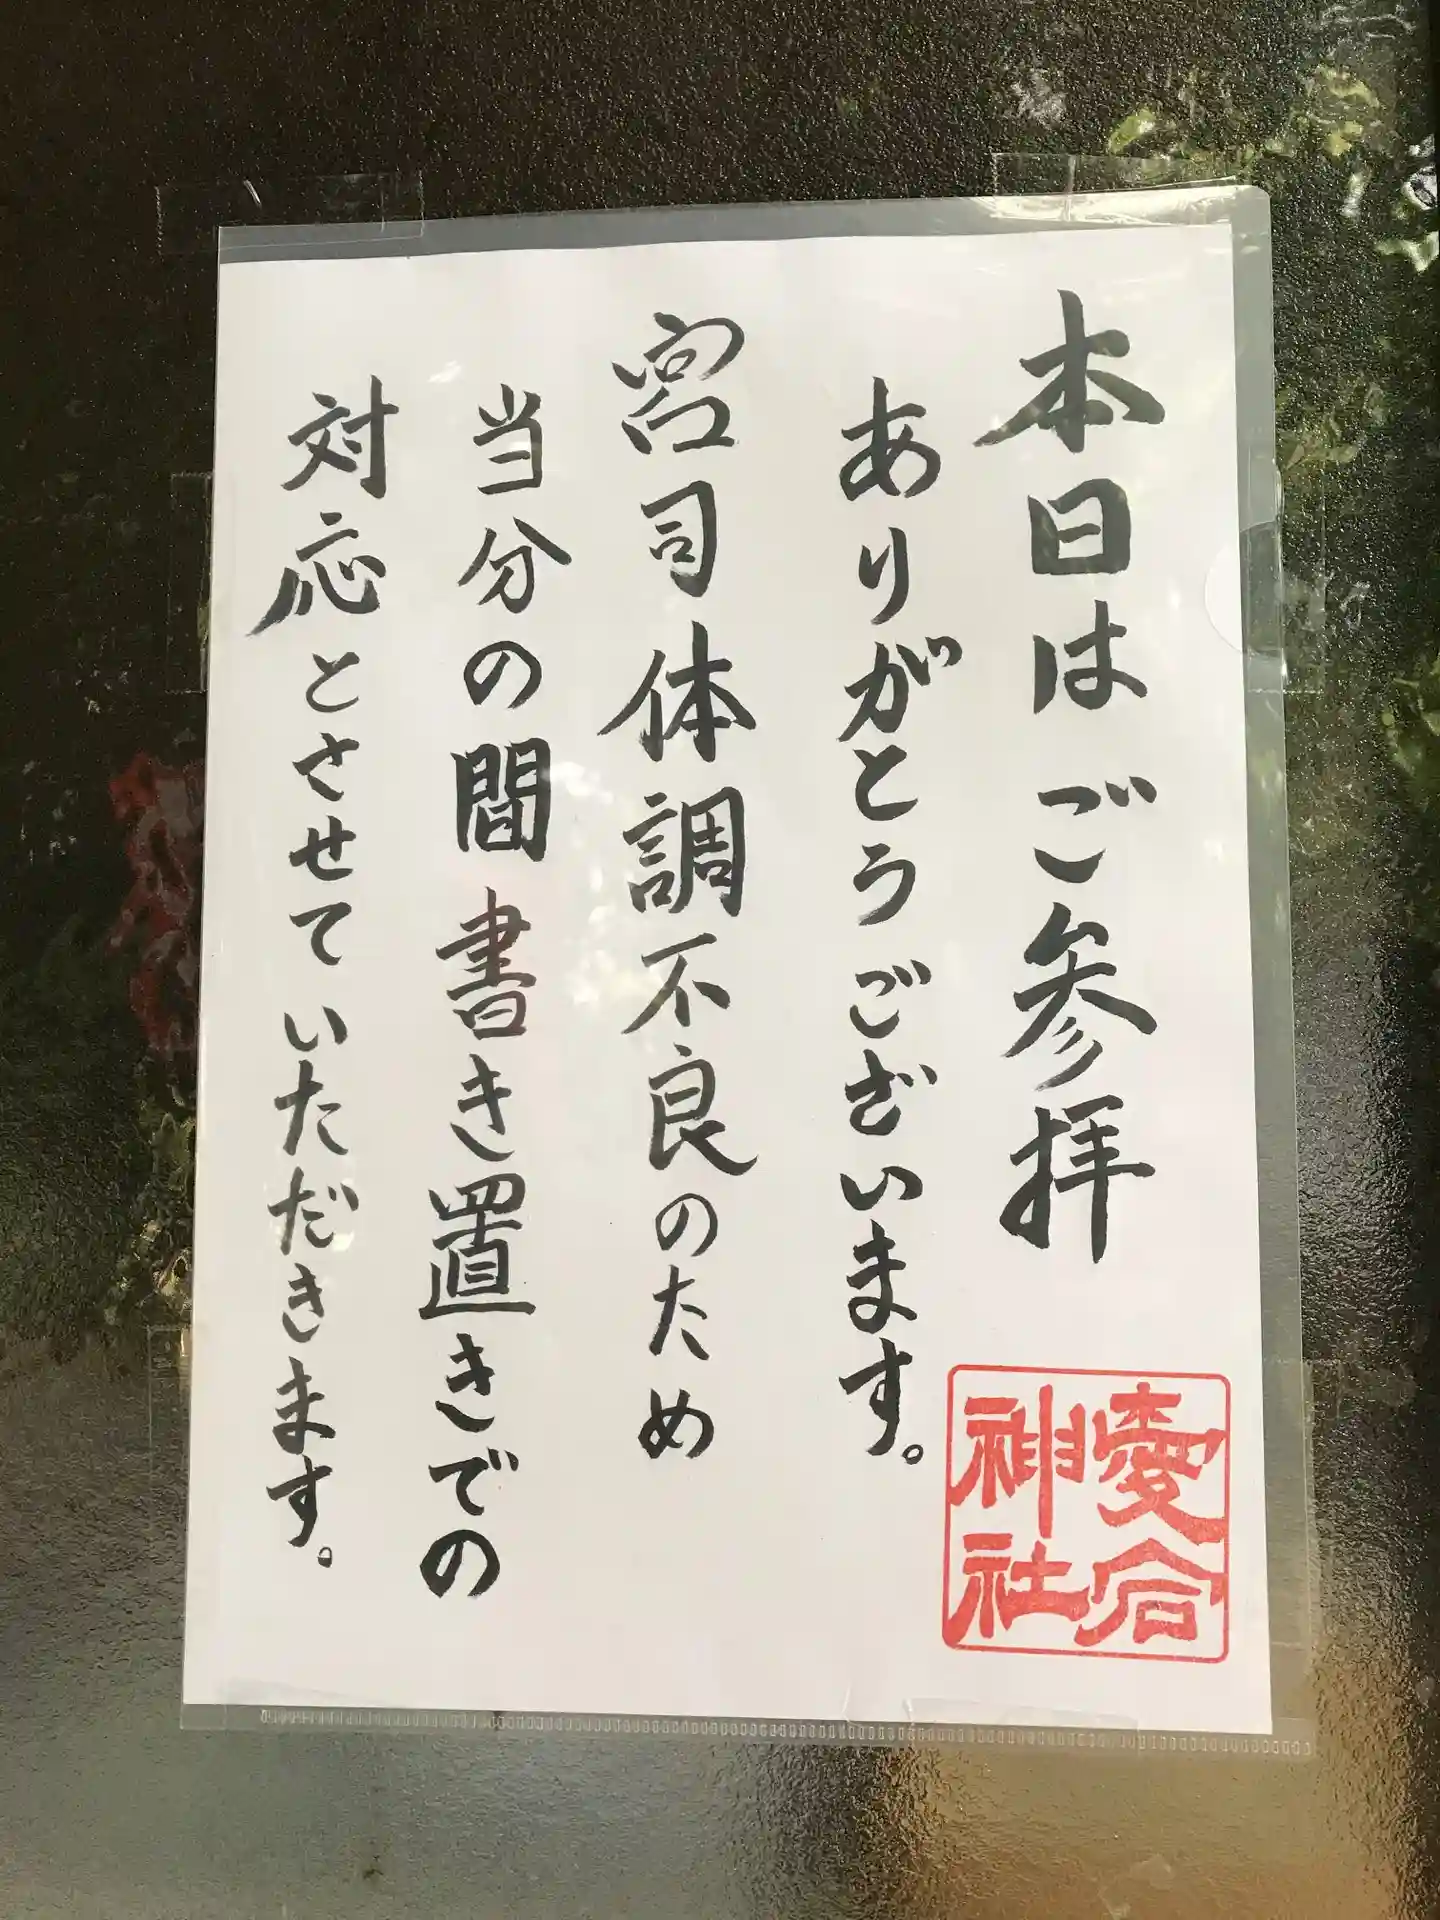 本日はご参拝
ありがとうございます。
宮司体調不良のため
当分の間書き置きでの
対応とさせていただきます。
愛宕
神社